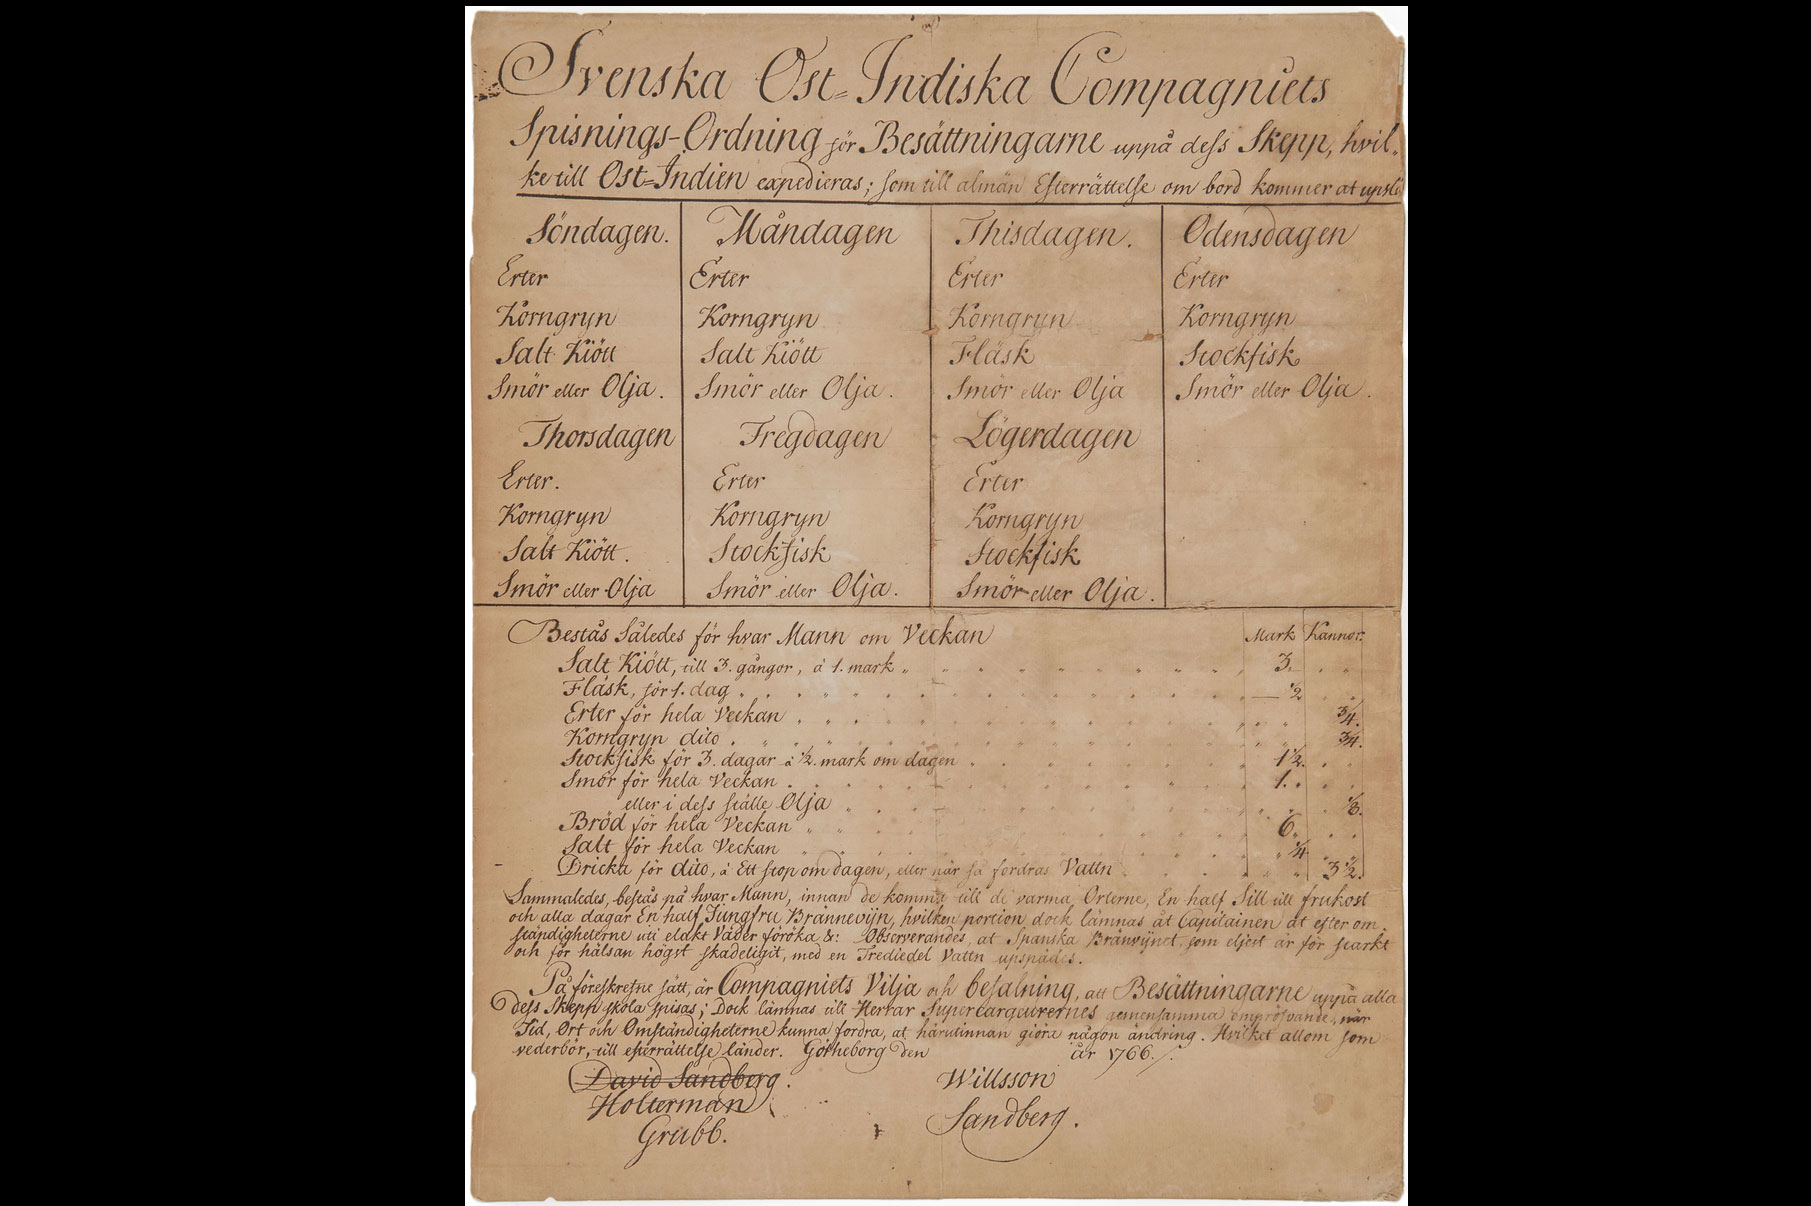 Svenska Ost-Indiska Compagniets
Spisnings-Ordning för Besättningarne uppå dess Skepp, hvil-
ke till Ost-Indien expedieras; som till almän Efterrättelse om bord kommer at upslå
Söndagen.
Erter
Korngryn
Salt Kiött
Smör eller Olja.
Måndagen
Erter
Korngryn
Salt Kiött
Smör eller Olja.
Thisdagen.
Erter
Korngryn
Fläsk
Smör eller Olja
Odensdagen
Erter
Korngryn
Stockfisk
Smör eller Olja.
Thorsdagen
Erter.
Korngryn
Salt Kiött.
Smör eller Olja
Fregdagen
Erter
Korngryn
Stockfisk
Smör eller Olja.
Lögerdagen
Erter
Korngryn
Stockfisk
Smör eller Olja.
Bestås Således för hvar Mann om Veckan Mark Kannor.
Salt Kiött, till 3. gångor, á 1. mark 3.
Fläsk, för 1. dag ½
Erter för hela Veckan ¾.
Korngryn dito ¾.
Stockfisk för 3. dagar á ½. mark om dagen 1½.
Smör för hela Veckan 1.
eller i dess ställe Olja ⅓.
Bröd för hela Veckan 6.
Salt för hela Veckan ¼
Dricka för dito, á Ett stop om dagen, eller när så fordras Vattn 3½.
Sammaledes, bestås på hvar Mann, innan de komma till de varma Orterne, En half Sill till frukost
och alla dagar En half Jungfru Brännevijn, hvilken portion dock lämnas åt Capitainen at efter om-
ständigheterne uti elakt Väder föröka &: Observerandes, at Spanska Bränvijnet, som eljest är för starkt
och för hälsan högst skadeligit, med en Trediedel Vattn upspädes.
På föreskrefne sätt, är Compagniets Vilja och befalning, att Besättningarne uppå alla
dess Skepp skola spisas; Dock lämnas till Herrar Supercarguerernes gemensamma ompröfvande, när
Tid, Ort och Omständigheterne kunna fordra, at härutinnan giöra någon ändring. Hvilket allom som
vederbör, till efterrättelse länder. Götheborg den år 1766.
David Sandberg. Willsson
Holterman
Sandberg.
Grubb.